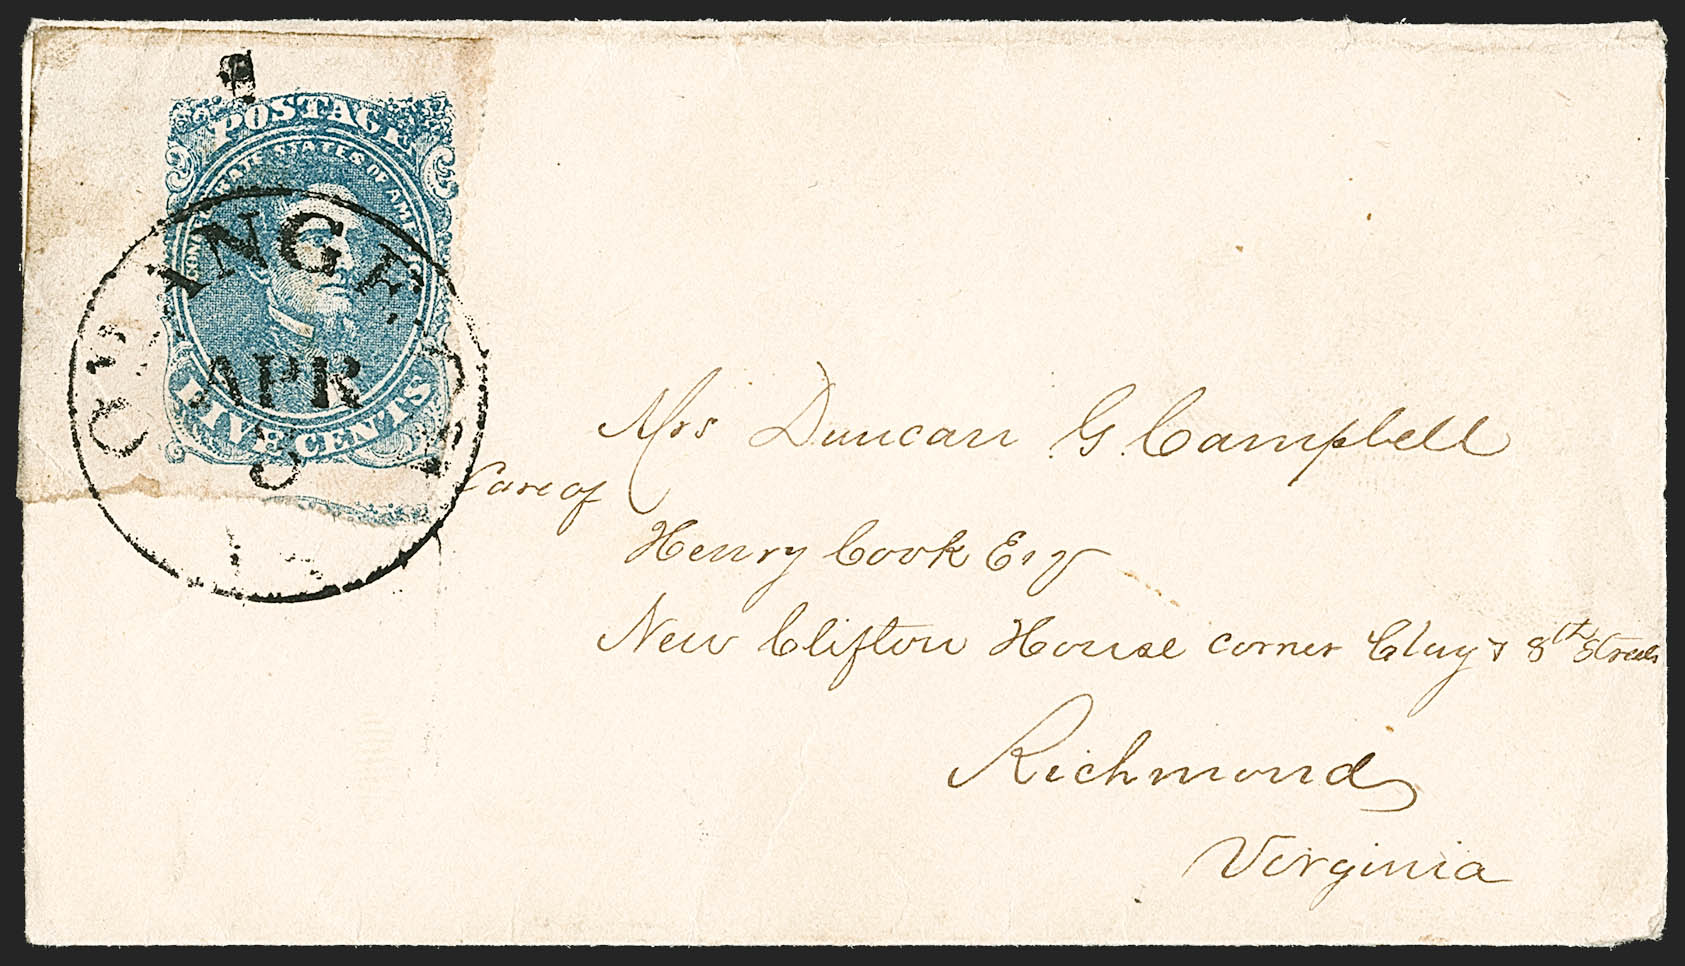 POSTAGE
CONFEDERATE STATES OF AMERICA
FIVE CENTS
ORANGE
APR
8
Mrs Duncan G Campbell
Care of
Henry Cook Esq
New Clifton House corner Clay & 8th Streets
Richmond
Virginia